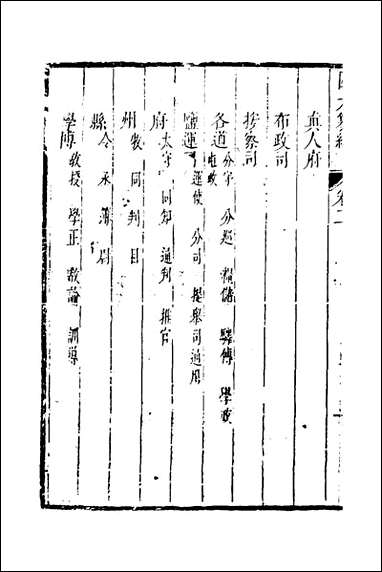 卷二
真人府
布政司
按察司
各道 分守 分廵 糧儲 驛傳 學政 屯政
鹽運 運使 分司 提舉司通用
府 太守 同知 通判 推官
州 牧 同 判 目
縣 令 丞 簿 尉
學博 教授 學正 教諭 訓導